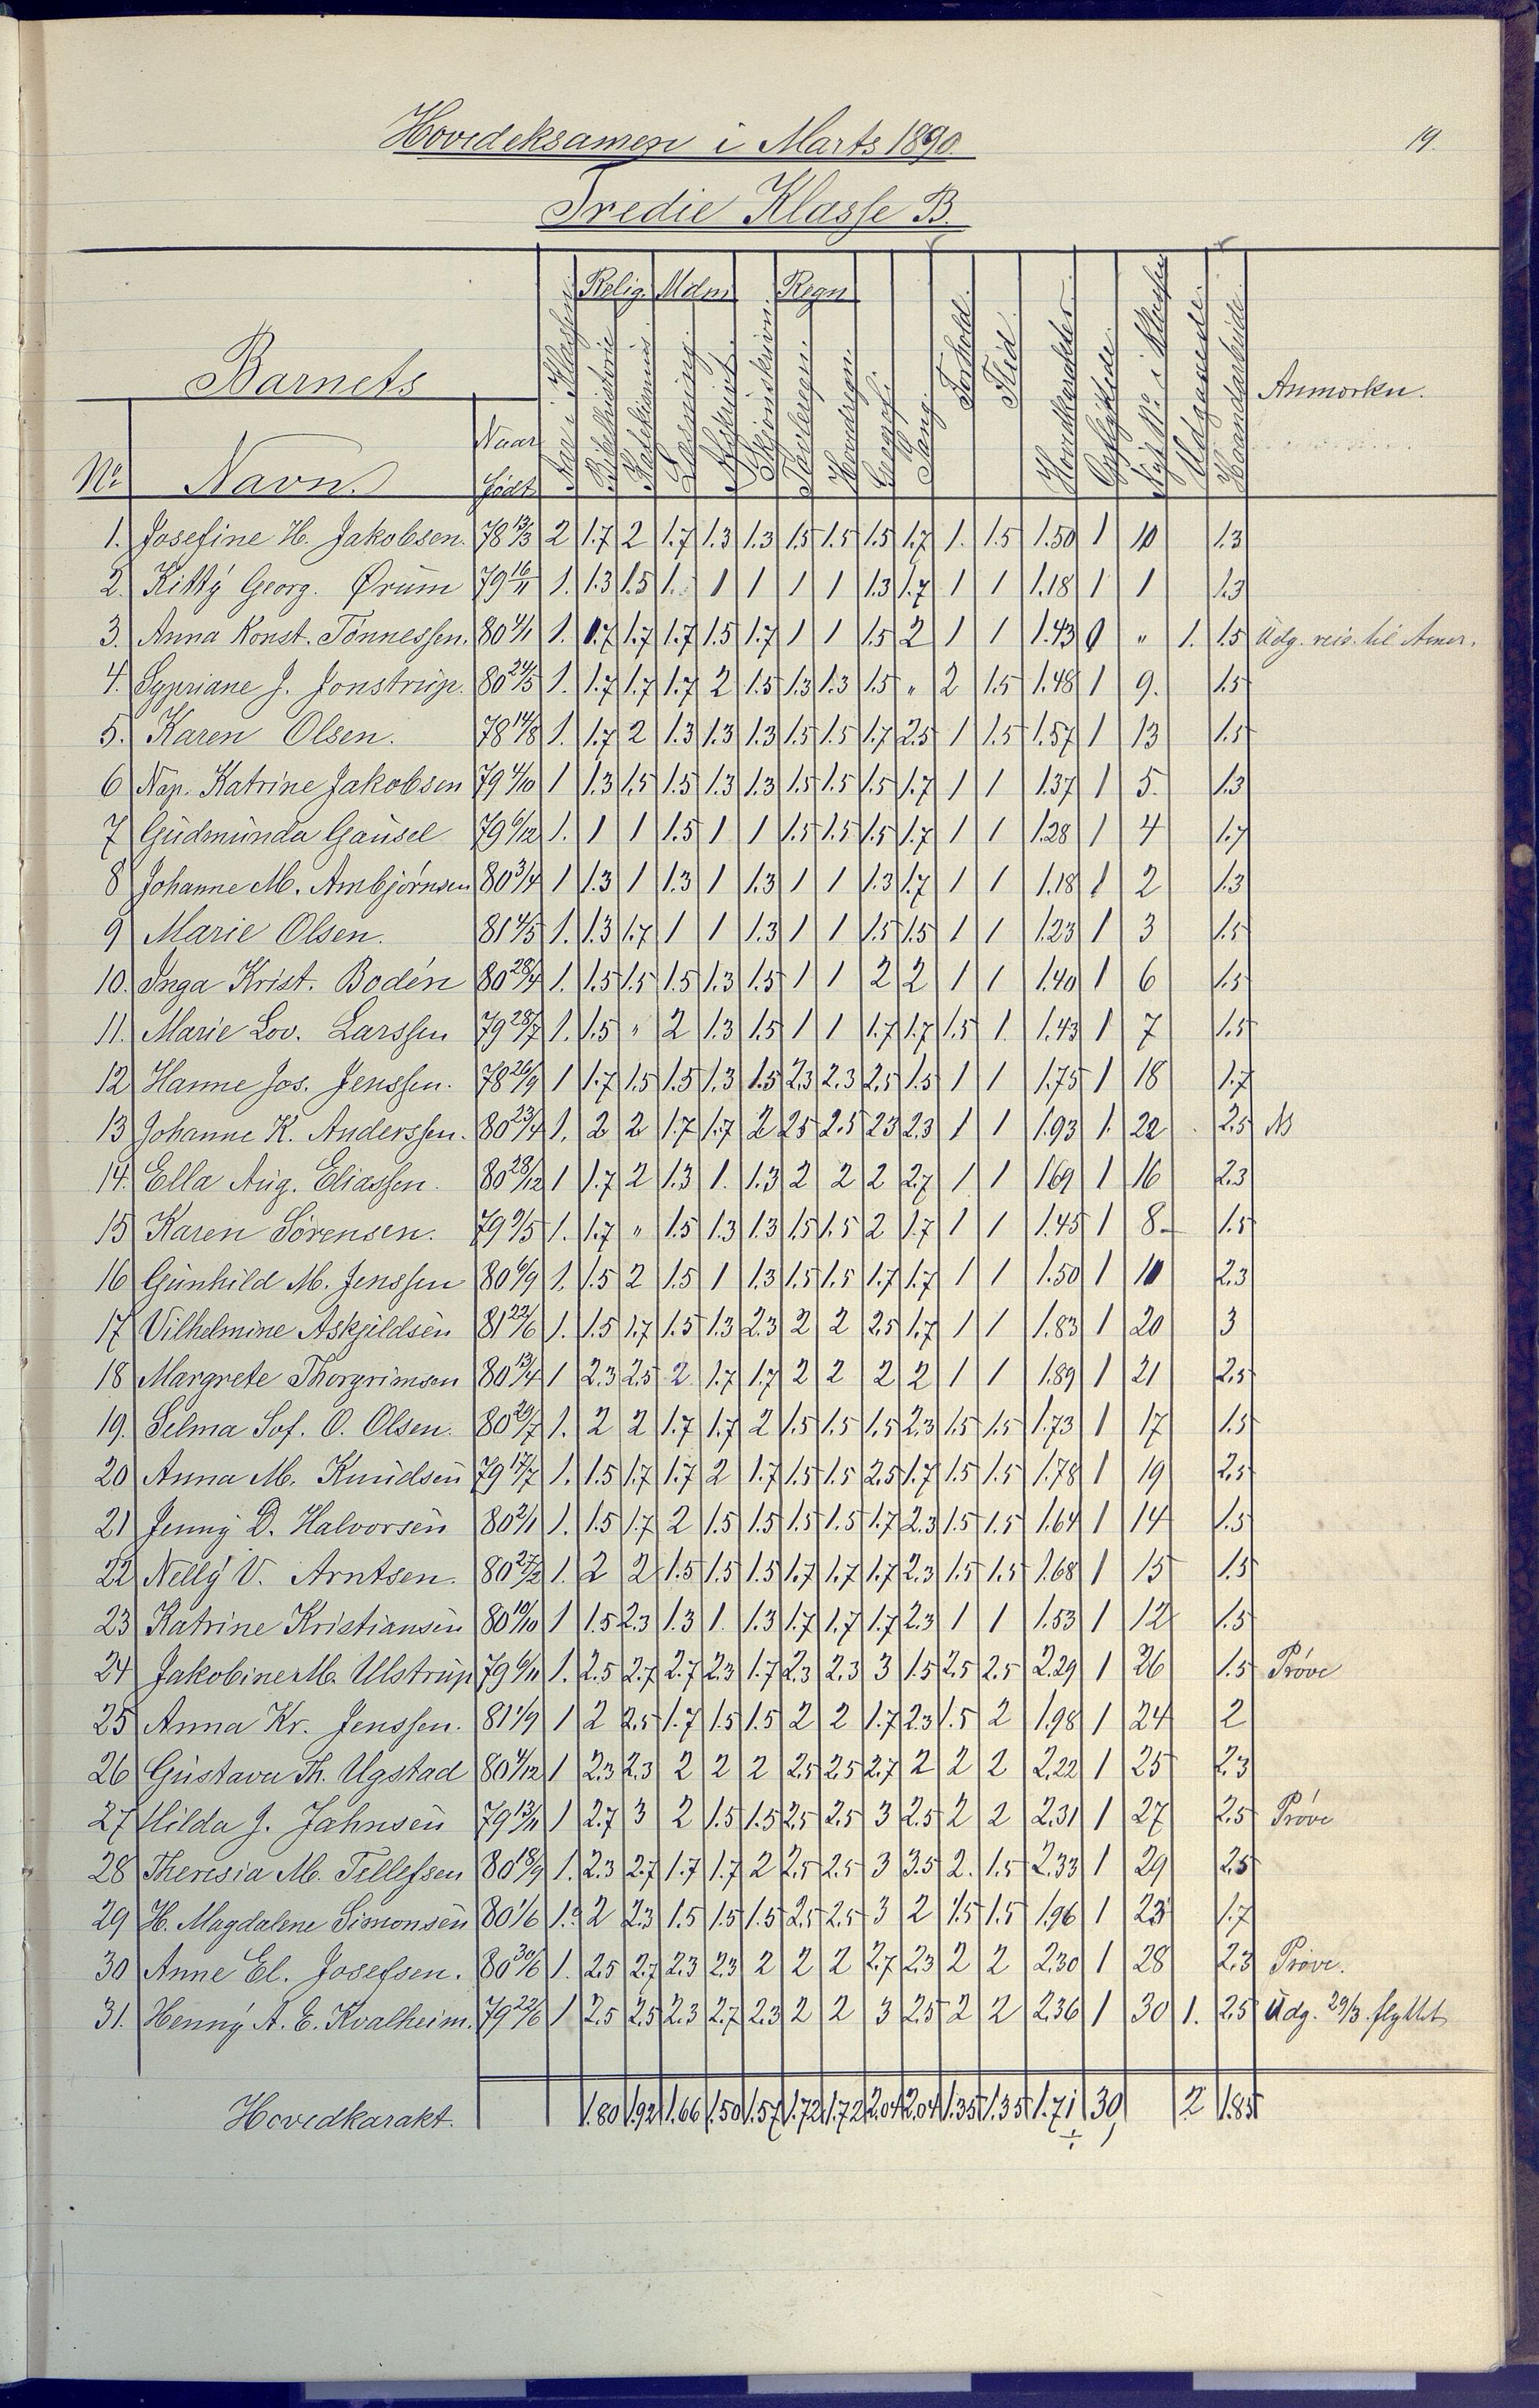 Hovedeksamen i Marts 1890.
19.
Tredie Klasse B.
Relig. Mdm. Regn.
Barnets Aar i Klassen. Bibelhistorie Katekismus. Læsning. Afskrivt. Skjönskrivn. Tavleregn. Hovedregn. Geograf. Sang. Forhold. Flid. Hovedkarakter. Opflyttede. Nyt No. i Klassen Udgaaede. Haandarbeide. Anmærkn.
No. Navn. Naar födt
1. Josefine H. Jakobsen. 78 13/3 2 1.7 2 1.7 1.3 1.3 1.5 1.5 1.5 1.7 1. 1.5 1.50 1 10 1.3
2. Kitty Georg. Ørum 79 16/11 1. 1.3 1.5 1. 1 1 1 1 1.3 1.7 1 1 1.18 1 1 1.3
3. Anna Konst. Tönnessen. 80 4/1 1. 1.7 1.7 1.7 1.5 1.7 1 1 1.5 2 1 1 1.43 0 " 1. 1.5 Udg. reis. til Amer.
4. Sypriane J. Jonstrup. 80 24/5 1. 1.7 1.7 1.7 2 1.5 1.3 1.3 1.5 " 2 1.5 1.48 1 9. 1.5
5. Karen Olsen. 78 14/8 1. 1.7 2 1.3 1.3 1.3 1.5 1.5 1.7 2.5 1 1.5 1.57 1 13 1.5
6 Nap. Katrine Jakobsen 79 4/10 1 1.3 1.5 1.5 1.3 1.3 1.5 1.5 1.5 1.7 1 1 1.37 1 5. 1.3
7 Gudmunda Gausel 79 6/12 1. 1 1 1.5 1 1 1.5 1.5 1.5 1.7 1 1 1.28 1 4 1.7
8 Johanne M. Ambjörnsen 80 3/4 1 1.3 1 1.3 1 1.3 1 1 1.3 1.7 1 1 1.18 1 2 1.3
9 Marie Olsen. 81 4/5 1. 1.3 1.7 1 1 1.3 1 1 1.5 1.5 1 1 1.23 1 3 1.5
10. Inga Krist. Bodén 80 28/4 1. 1.5 1.5 1.5 1.3 1.5 1 1 2 2 1 1 1.40 1 6 1.5
11. Marie Lov. Larssen 79 28/7 1. 1.5 " 2 1.3 1.5 1 1 1.7 1.7 1.5 1. 1.43 1 7 1.5
12 Hanne Jos. Jenssen. 78 26/9 1 1.7 1.5 1.5 1.3 1.5 2.3 2.3 2.5 1.5 1 1 1.75 1 18 1.7
13 Johanne K. Anderssen. 80 23/4 1. 2 2 1.7 1.7 2 2.5 2.5 2.3 2.3 1 1 1.93 1. 22 2.5
14. Ella Aug. Eliassen. 80 28/12 1 1.7 2 1.3 1. 1.3 2 2 2 2.7 1 1 1.69 1 16 2.3
15 Karen Sörensen. 79 9/5 1. 1.7 " 1.5 1.3 1.3 1.5 1.5 2 1.7 1 1 1.45 1 8 1.5
16 Gunhild M. Jenssen 80 6/9 1. 1.5 2 1.5 1 1.3 1.5 1.5 1.7 1.7 1 1 1.50 1 10 2.3
17 Vilhelmine Askjeldsen 81 22/6 1. 1.5 1.7 1.5 1.3 2.3 2 2 2.5 1.7 1 1 1.83 1 20 3
18 Margrete Thorgrimsen 80 13/4 1 2.3 2.5 2 1.7 1.7 2 2 2 2 1 1 1.89 1 21 2.5
19. Selma Sof. O. Olsen. 80 29/7 1. 2 2 1.7 1.7 2 1.5 1.5 1.5 2.3 1.5 1.5 1.73 1 17 1.5
20 Anna M. Knudsen 79 17/7 1. 1.5 1.7 1.7 2 1.7 1.5 1.5 2.5 1.7 1.5 1.5 1.78 1 19 2.5
21 Jenny D. Halvorsen 80 2/1 1. 1.5 1.7 2 1.5 1.5 1.5 1.5 1.7 2.3 1.5 1.5 1.64 1 14 1.5
22 Nelly V. Arntsen. 80 27/2 1. 2 2 1.5 1.5 1.5 1.7 1.7 1.7 2.3 1.5 1.5 1.68 1 15 1.5
23 Katrine Kristiansen 80 10/10 1 1.5 2.3 1.3 1. 1.3 1.7 1.7 1.7 2.3 1 1 1.53 1 12 1.5
24 Jakobine M. Ulstrup 79 6/11 1. 2.5 2.7 2.7 2.3 1.7 2.3 2.3 3 1.5 2.5 2.5 2.29 1 26 1.5 Pröve
25 Anna Kr. Jenssen. 81 1/9 1 2 2.5 1.7 1.5 1.5 2 2 1.7 2.3 1.5 2 1.98 1 24 2
26 Gustava Th. Ugstad 80 4/12 1 2.3 2.3 2 2 2 2.5 2.5 2.7 2 2 2 2.22 1 25 2.3
27 Hilda J. Jahnsen 79 13/11 1 2.7 3 2 1.5 1.5 2.5 2.5 3 2.5 2 2 2.31 1 27 2.5 Pröve
28 Theresia M. Tellefsen 80 18/9 1. 2.3 2.7 1.7 1.7 2 2.5 2.5 3 3.5 2. 1.5 2.33 1 29 2.5
29 H. Magdalene Simonsen 80 1/6 1. 2 2.3 1.5 1.5 1.5 2.5 2.5 3 2 1.5 1.5 1.96 1 23 1.7
30 Anne El. Josefsen. 80 30/6 1. 2.5 2.7 2.3 2.3 2 2 2 2.7 2.3 2 2 2.30 1 28 2.3 Pröve.
31. Henny A. E. Kvalheim. 79 22/6 1 2.5 2.5 2.3 2.7 2.3 2 2 3 2.5 2 2 2.36 1 30 1. 2.5 Udg. 29/3. flyttet
Hovedkarakt. 1.80 1.92 1.66 1.50 1.57 1.72 1.72 2.04 2.04 1.35 1.35 1.71 30 2 1.85